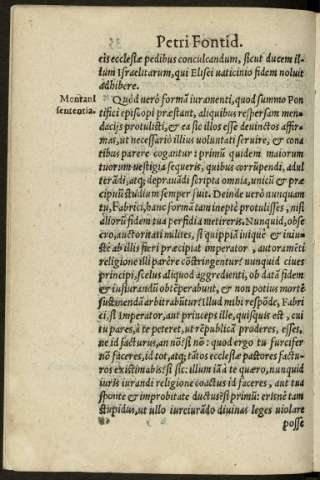 Petri Fontid.
eis ecclesiæ pedibus conculcandum, sicut ducem il-
lum Israelitarum, qui Elisei vaticinio fidem noluit
adhibere.
Mentani
sententia.
Quòd verò formã iuramenti, quod summo Pon
tifici episcopi præstant, aliquibus respersam men-
dacijs protulisti, & ea sic illos esse deuinctos affir-
mas, ut necessariò illius voluntati seruire, & cona
tibus parere cogantur: primũ quidem maiorum
tuorum vestigia sequeris, quibus corrũpendi, adul
terãdi, atq; deprauãdi scripta omnia, unicũ & præ
cipuũ studium semper fuit. Deinde verò nunquam
tu, Fabrici, hanc formã tam ineptè protulisses, nisi
aliorũ fidem tua perfidia metireris. Nunquid, obse
cro, auctorati milites, si quippiã iniquè & iniu-
stè ab illis fieri præcipiat imperator, autoramẽti
religione illi parere cõstringentur? nunquid ciues
principi, scelus aliquod aggredienti, ob datã fidem
& iusiurandũ obtẽperabunt, & non potius mortẽ
sustinendã arbitrabũtur? Illud mihi respõde, Fabri
ci, si Imperator, aut princeps ille, quisquis est, cui
tu pares, à te peteret, ut rẽpublicã proderes, esses,
ne id facturus, an nõ? si nõ: quod ergo tu furcifer
nõ faceres, id tot, atq; tãtos ecclesiæ pastores factu-
ros existimabis? si sic: illum iã à te quæro, nunquid
iuris iurandi religione coactus id faceres, aut tua
sponte & improbitate ductus? si primũ: erisnè tam
stupidus, ut ullo iureiurãdo diuinas leges violare
posse